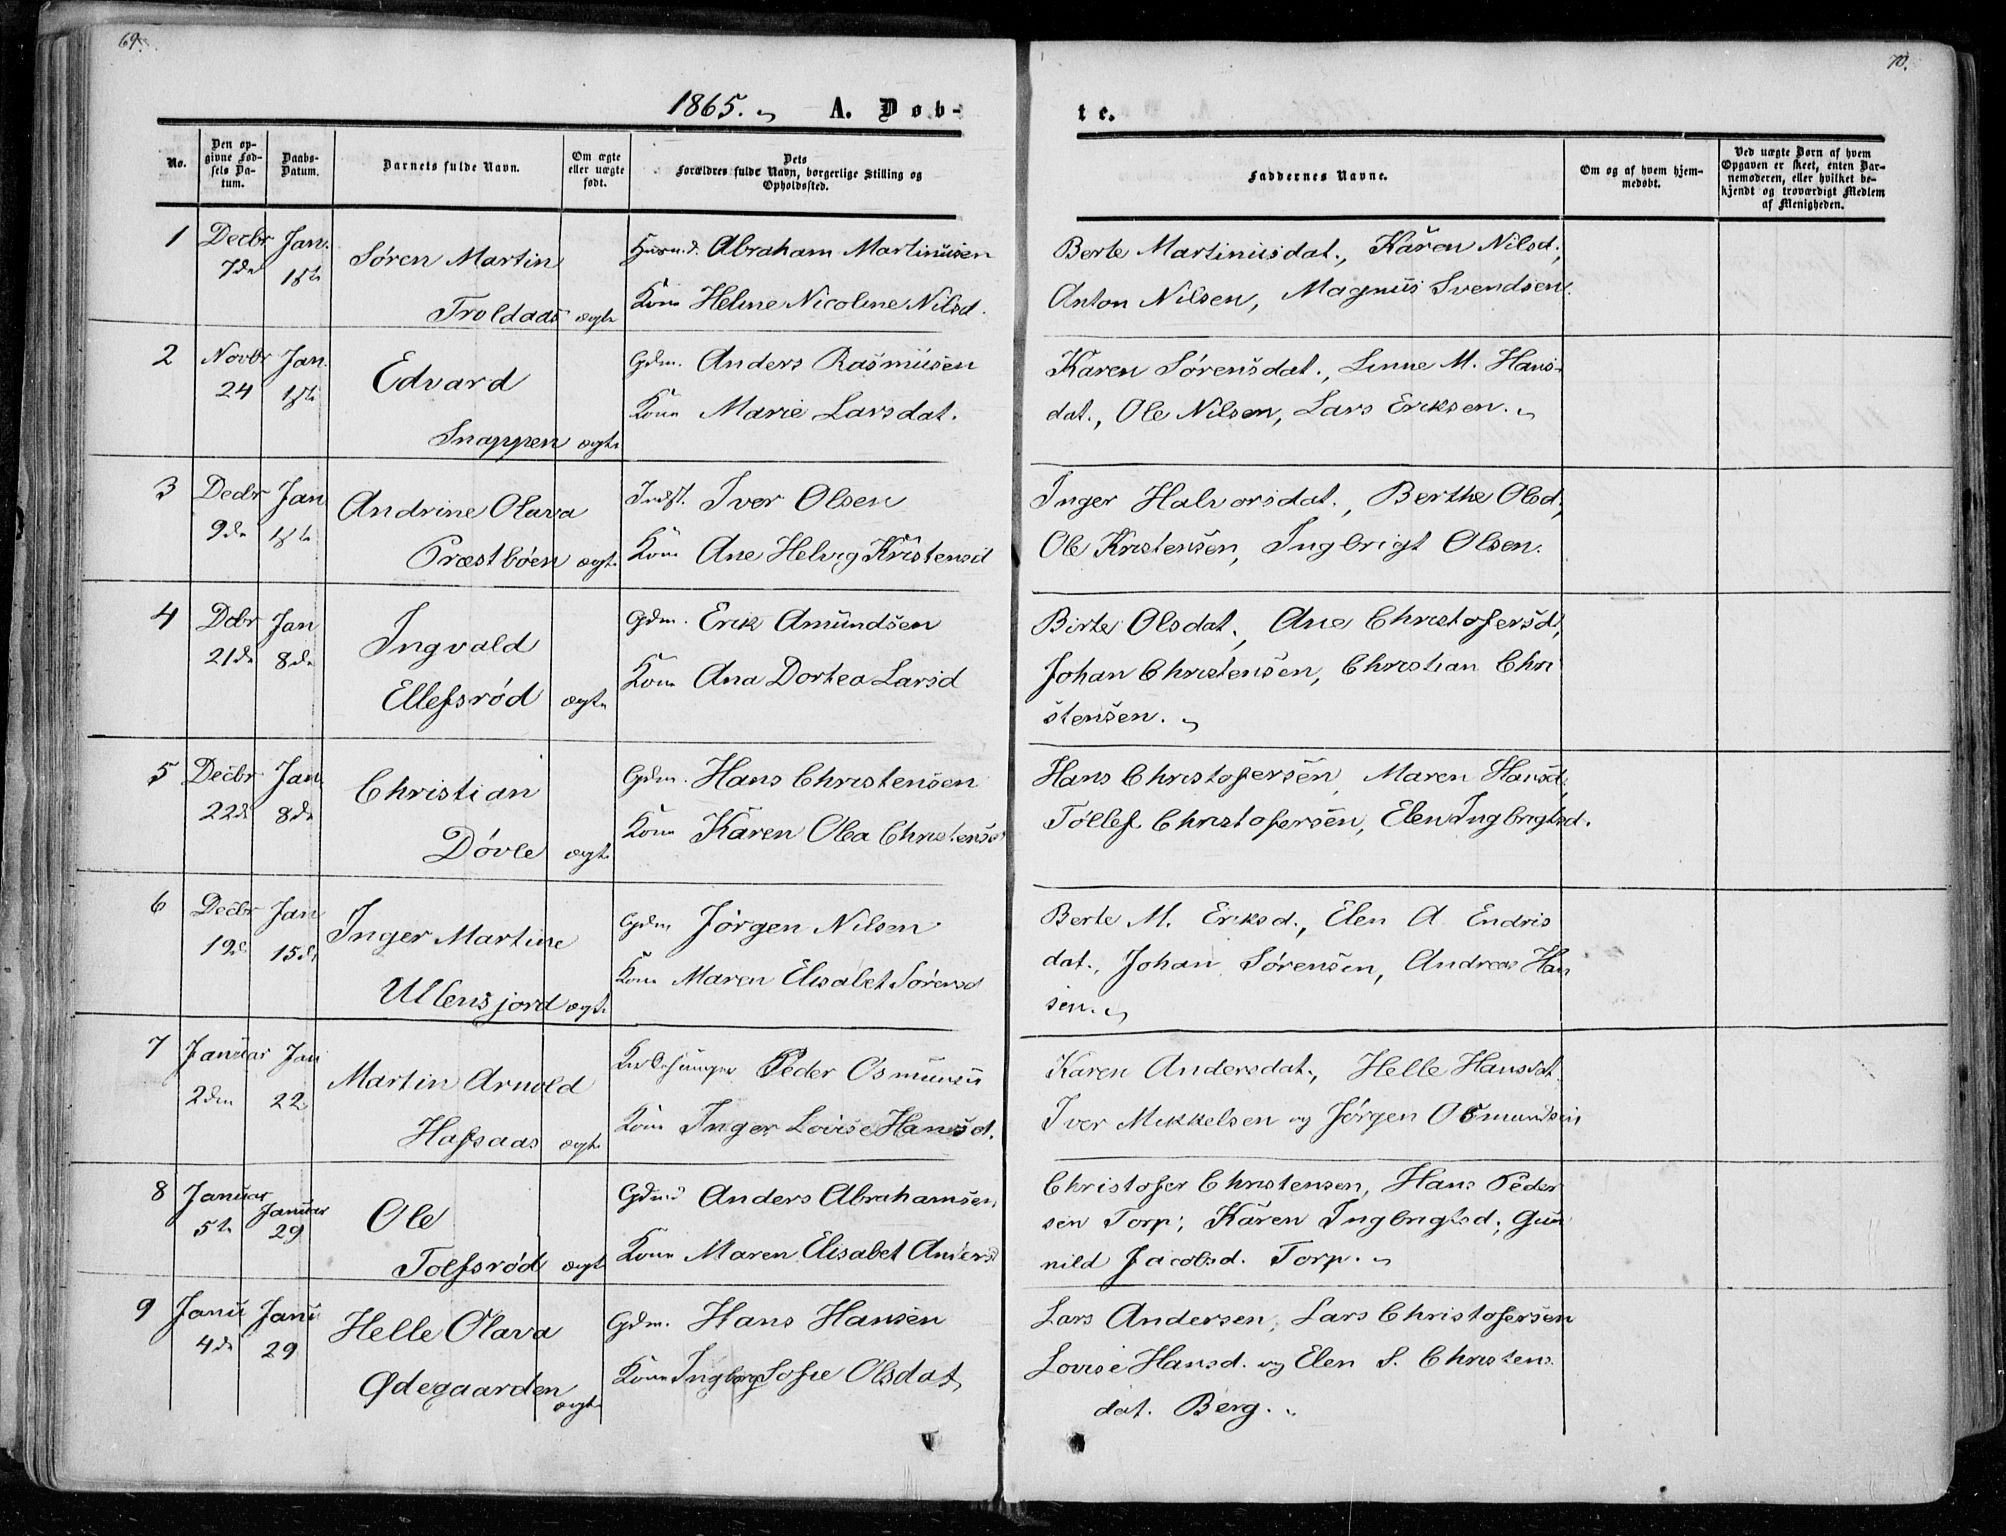 69.
70.
1865. A. Døb-
te.
No.
Den op-
givne Fød-
sels Da-
tum.
Daabs-
Datum.
Barnets fulde Navn.
Om ægte
eller uægte
født.
Dets
Forældres fulde Navn, borgerlige Stilling og
Opholdssted.
Faddernes Navne.
Om og af hvem hjem-
medøbt.
Ved uægte Børn af hvem
Opgaven er skeet, enten Bar-
nemoderen, eller hvilket be-
kjendt og troværdigt Medlem
af Menigheden.
1 Decbr Jan. Søren Martin Husmd. Abraham Martinusen Berte Martinusdat., Karen Nilsd.,
7de 1ste Troldaas ægte Kone Heline Nicoline Nilsd. Anton Nilsen, Magnus Svendsen.
2 Novbr Jan. Edvard Gdm. Anders Rasmusen Karen Sørensdat., Linne M. Hans-
24 1ste Snappen ægte Kone Marie Larsdat. dat., Ole Nilsen, Lars Eriksen.
3 Decbr Jan Andrine Olava Indst. Iver Olsen Inger Halvorsdat., Berthe Olsd.,
9de 1ste Præstbøen ægte Kone Ane Helvig Kristensd Ole Kristensen, Ingbrigt Olsen.
4 Dcbr Jan Ingvald Gdm. Erik Amundsen Birte Olsdat., Ane Christofersd.,
21de 8de Ellefsrød ægte Kone Ana Dortea Larsd Johan Christensen, Christian Chri
stensen.
5 Decbr Jan. Christian Gdm. Hans Christensen Hans Christofersen, Maren Hansd.,
22de 8de Døvle ægte Kone Karen Olea Christensd Tollef Christofersen, Elen Ingbrigtsd.
6 Decbr Jan Inger Martine Gdm Jørgen Nilsen Berte M. Eriksd., Elen A Endris
19de 15de Ullensjord ægte Kone Maren Elisabet Sørensd dat., Johan Sørensen, Andreas Han
sen.
7 Januar Jan Martin Arnold Kirkesanger Peder Osmunsen Karen Andersdat., Helle Hansdat.
2den 22 Hafsaas ægte Kone Inger Lovise Hansd. Iver Mikkelsen og Jørgen Osmundsen
8 Januar Januar Ole Gdmd Anders Abrahamsen, Christofer Christensen, Hans Peder
5te 29 Tolfsrød ægte Kone Maren Elisabet Andersd sen Torp; Karen Ingbrigtsd; Gun
nild Jacobsd. Torp.
9 Janu Janu Helle Olava Gdm. Hans Hansen Lars Andersen, Lars Christofersen
4de 29 Ødegaarden ægte Kone Ingborg Sofie Olsdat, Lovise Hansd. og Elen S. Christens
dat. Berg.